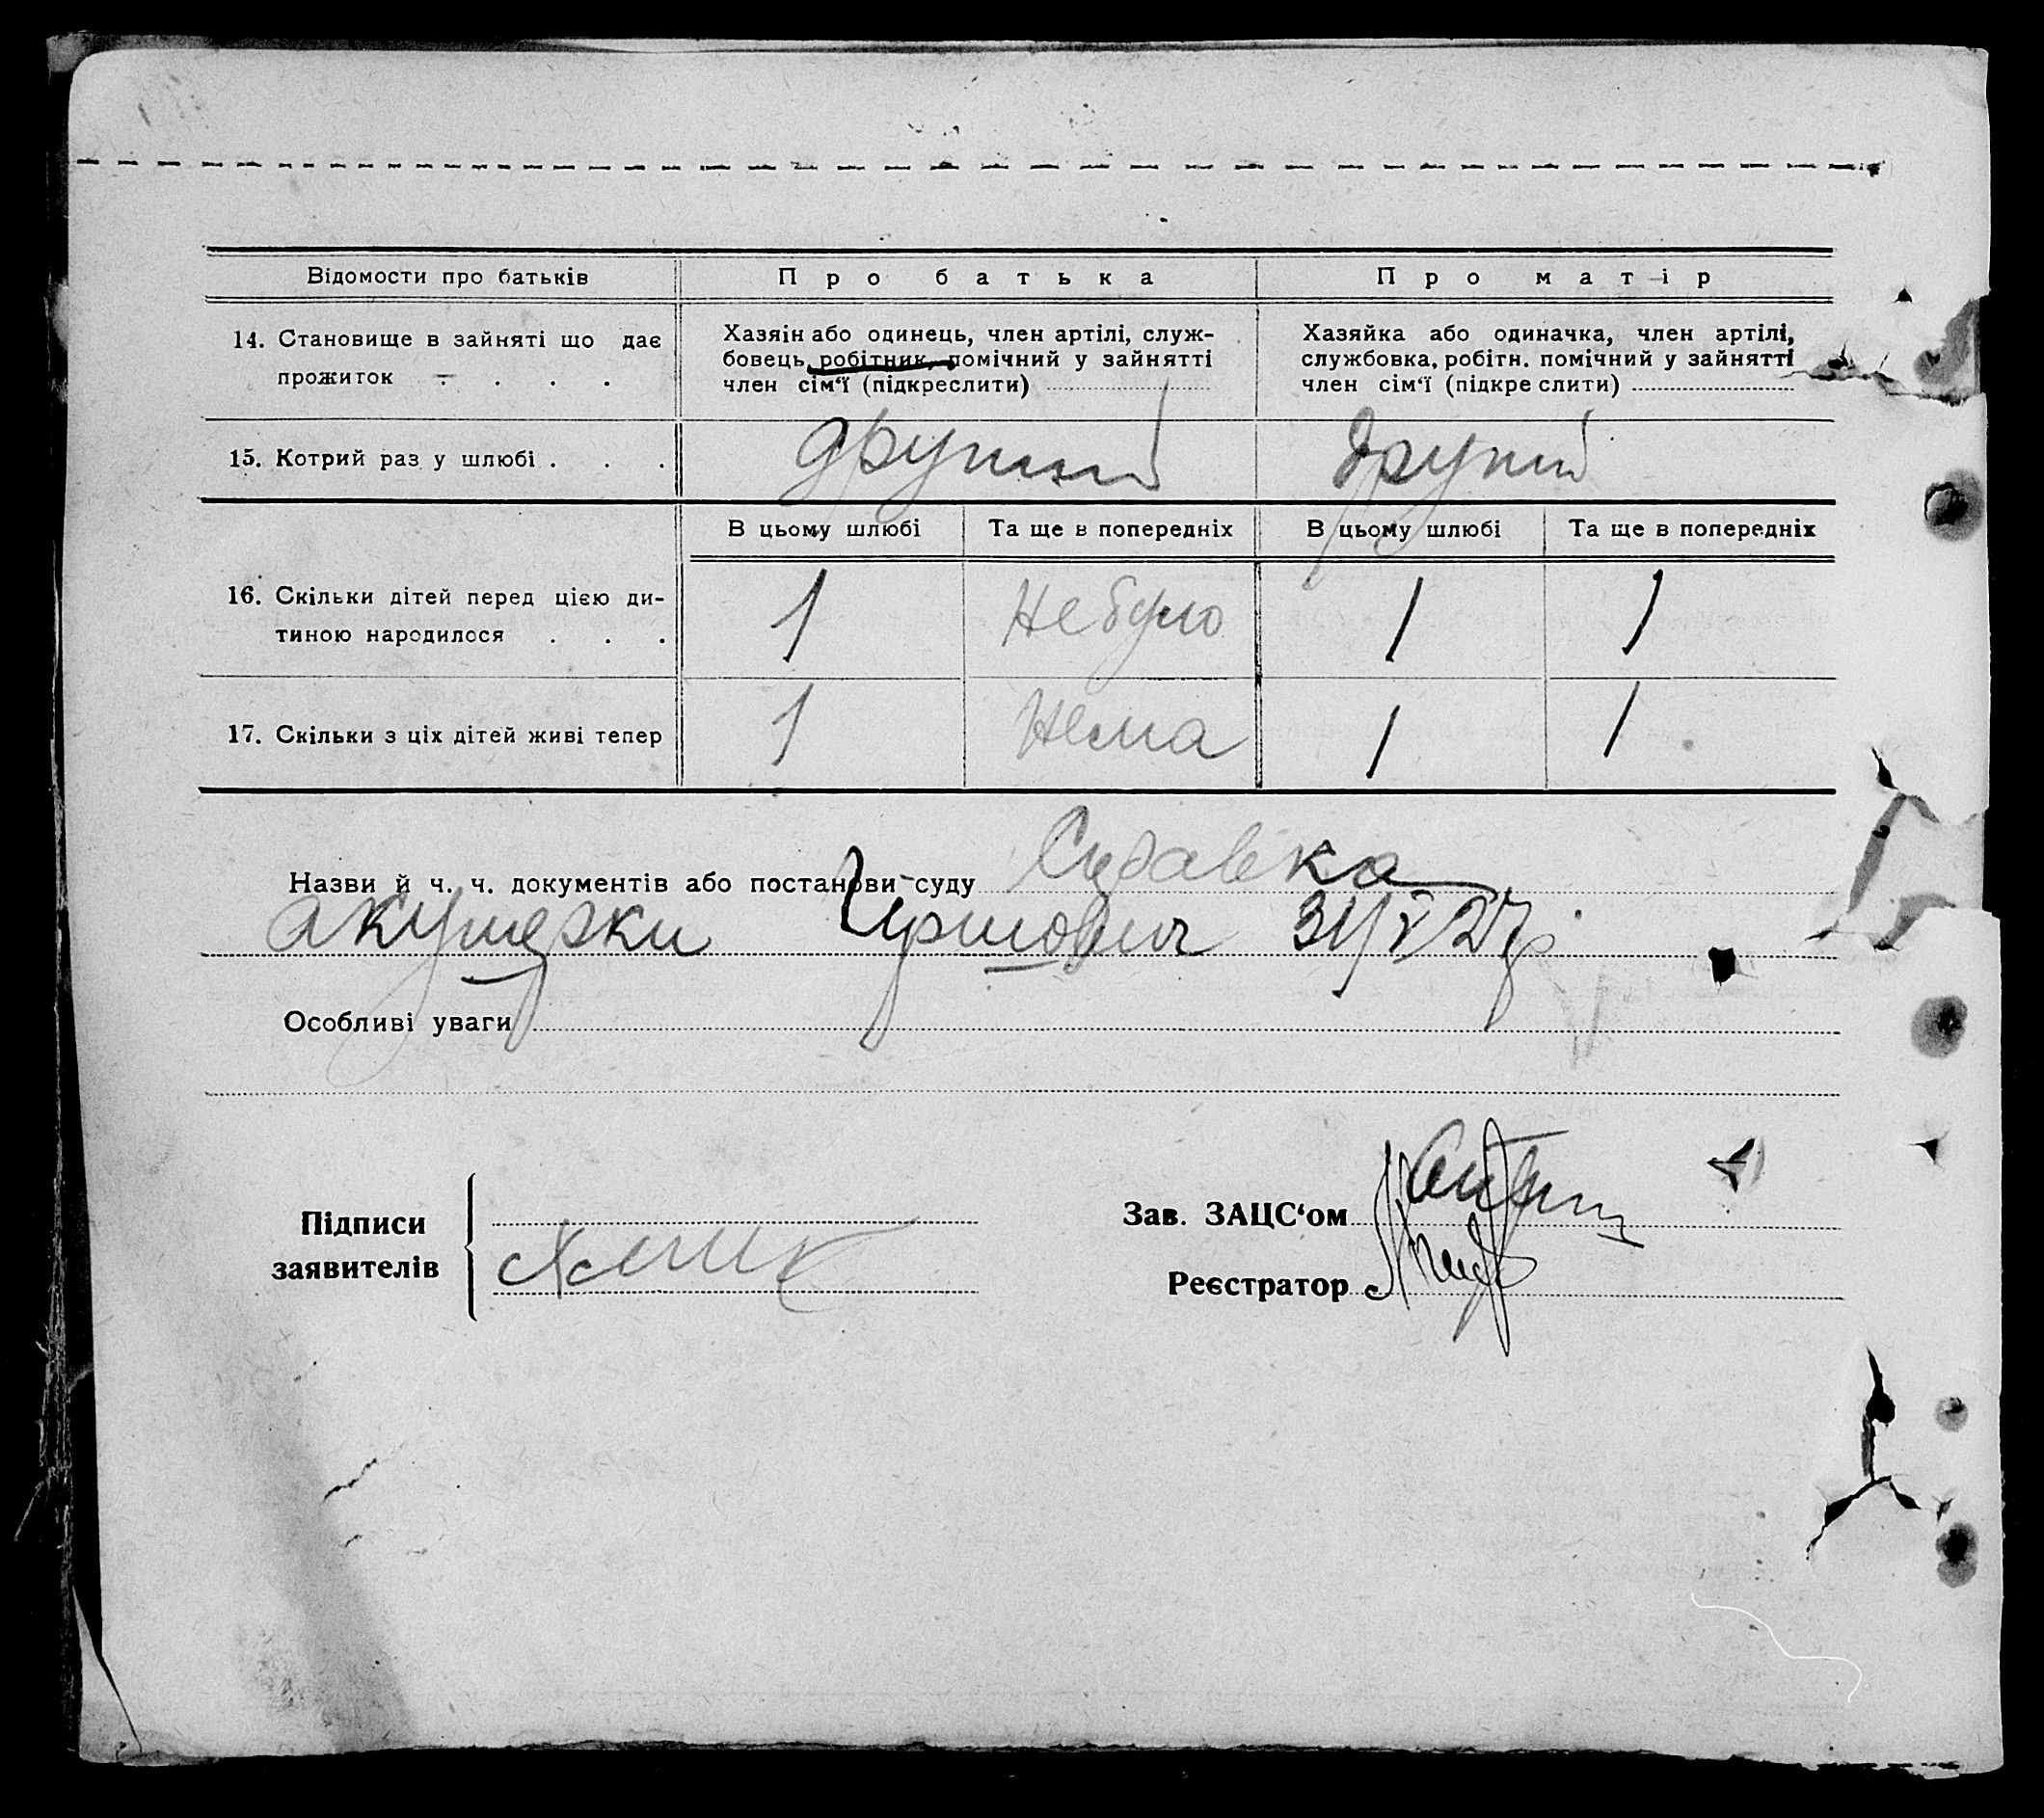 Відомости про батьків
Про батька
Про матір
14. Становище в зайняті що дає
прожиток . . . .
Хазяін або одинець, член артілі, служ-
бовець, робітник, помічний у зайнятті
член сім‘ї (підкреслити)
Хазяйка або одиначка, член артілі,
службовка, робітн. помічний у зайнятті
член сім‘ї (підкре слити)
15. Котрий раз у шлюбі . . .
другий
другий
В цьому шлюбі
Та ще в попередніх
В цьому шлюбі
Та ще в попередніх
16. Скільки дітей перед цією ди-
тиною народилося . . .
1
Не було
1
1
17. Скільки з ціх дітей живі тепер
1
Нема
1
1
Назви й ч. ч. документів або постанови суду
акушерки
Особливі уваги
Підписи
заявителів
Зав. ЗАЦС‘ом
Реєстратор